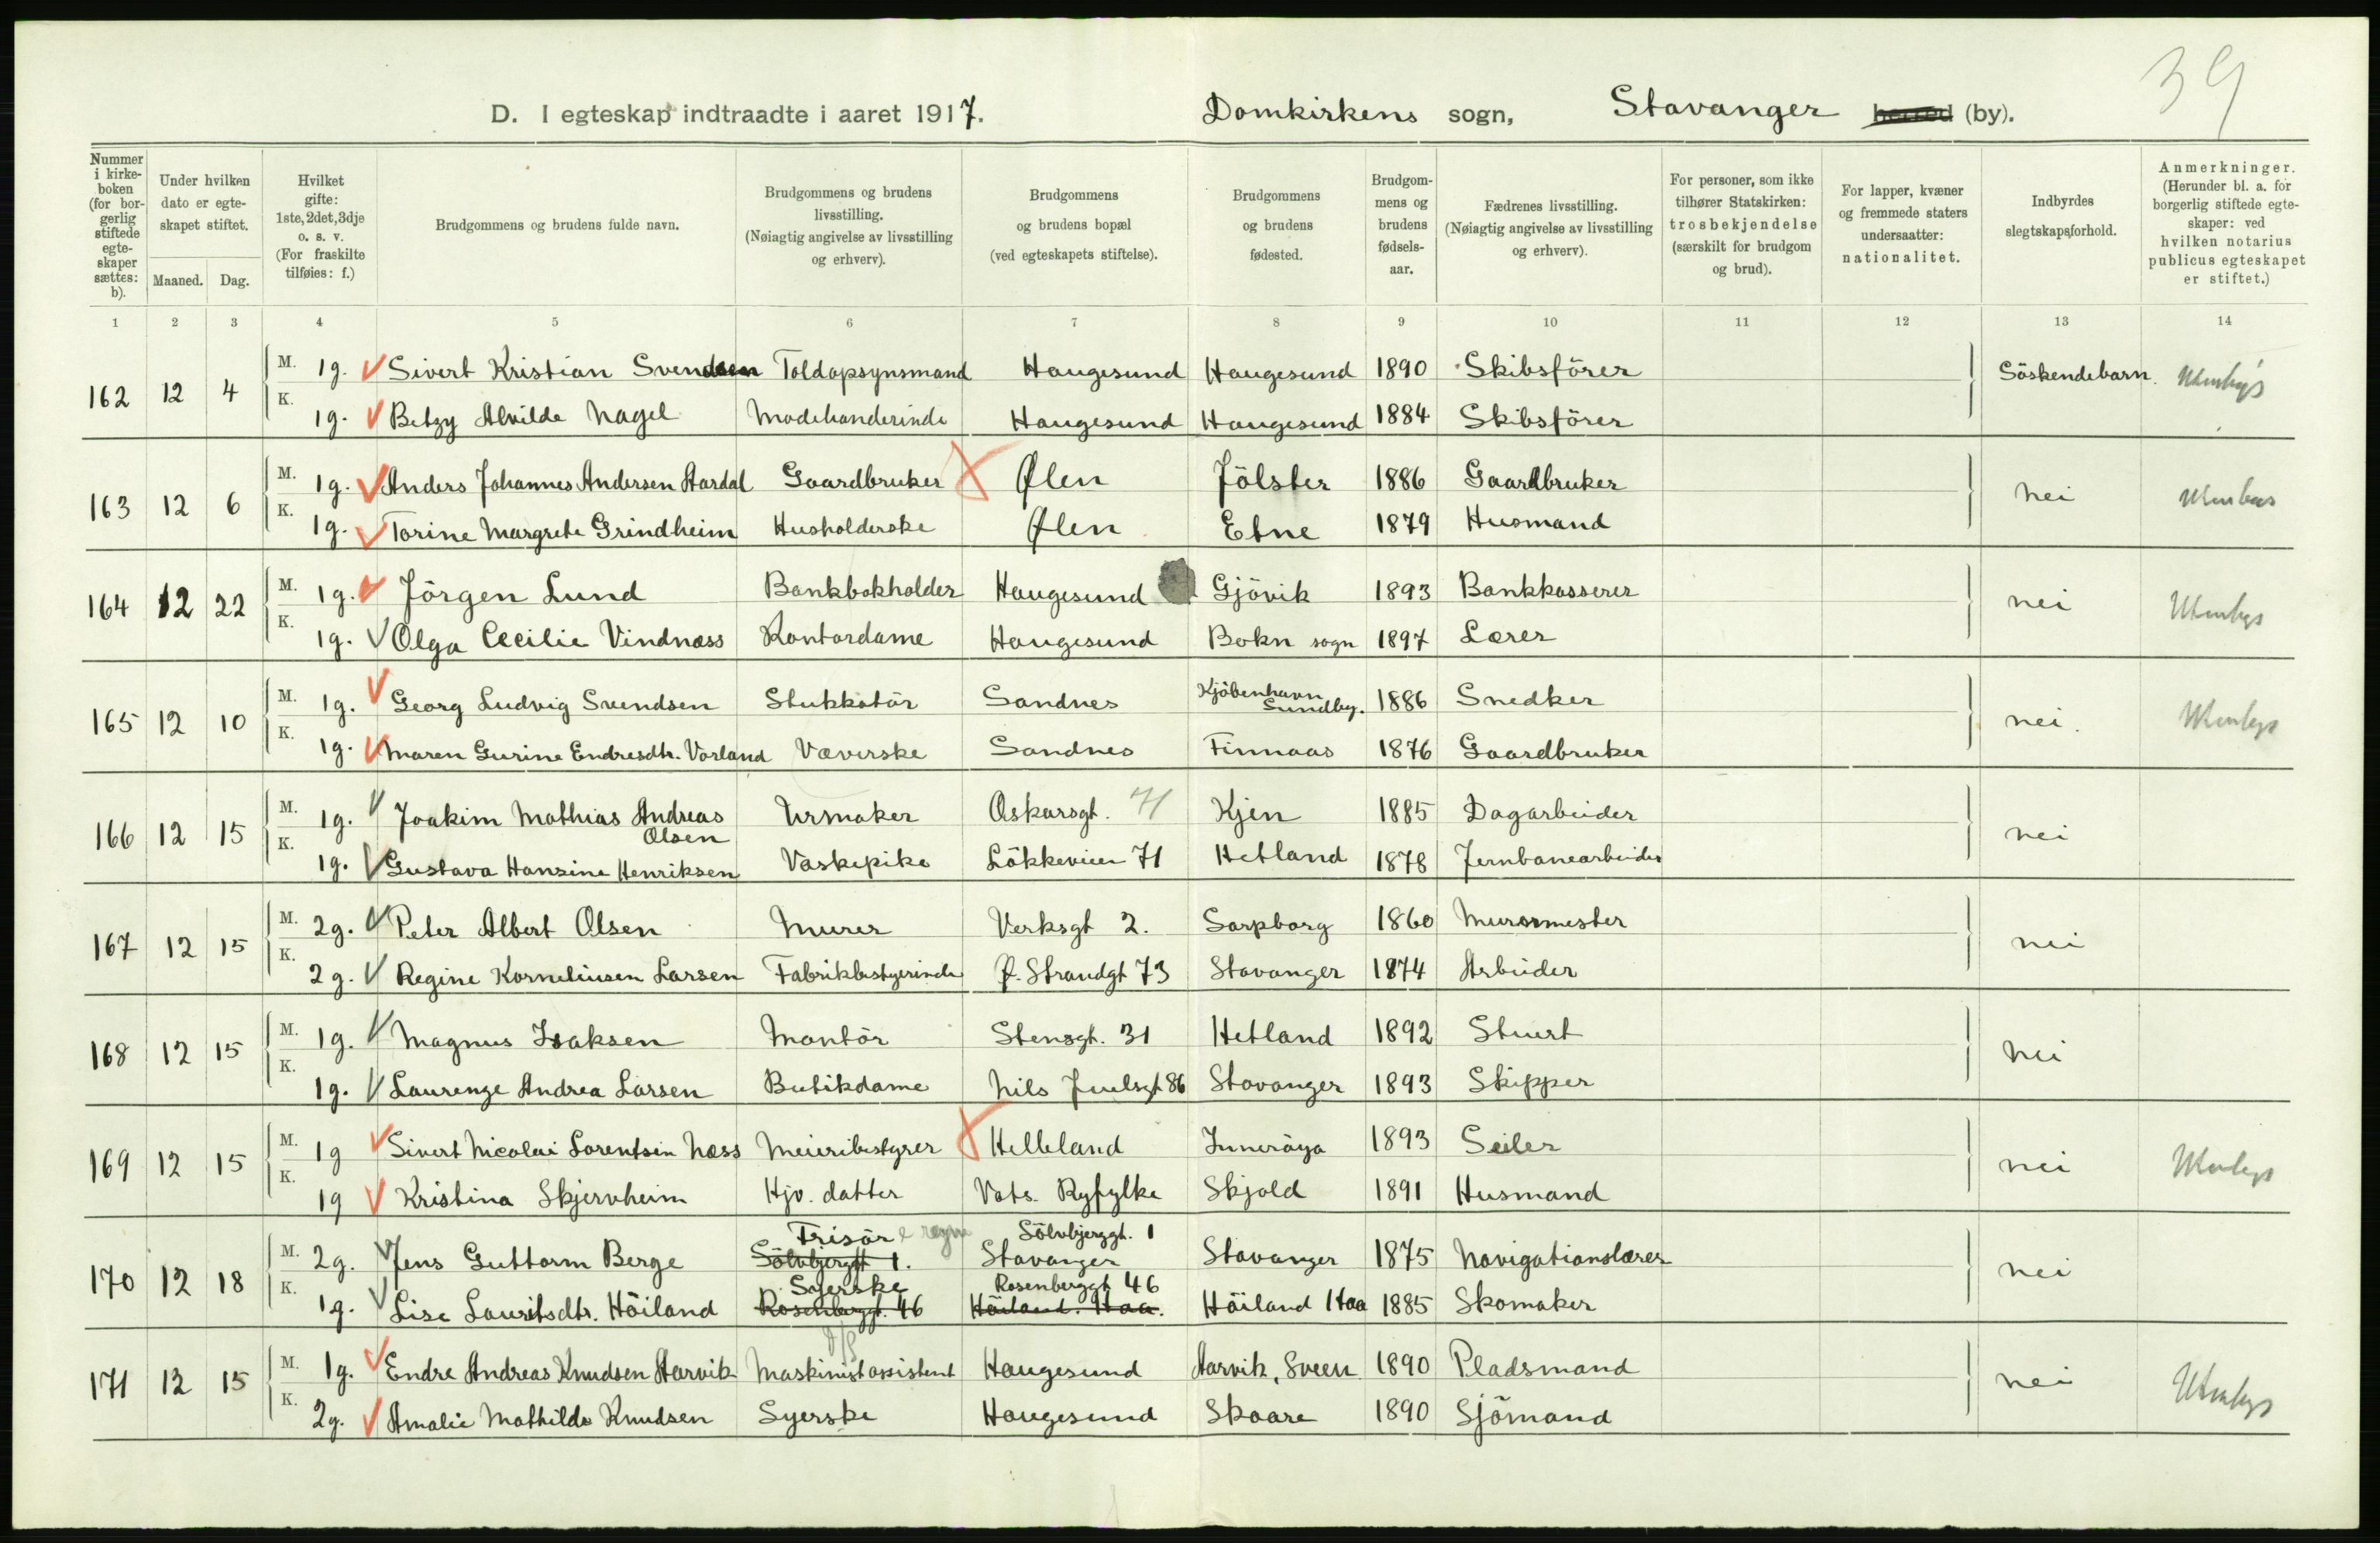 39
D. I egteskap indtraadte i aaret 1917. Domkirkens sogn, Stavanger herred (by).
Nummer i kirke-boken (for bor-gerlig stiftede egte-skaper sættes: b).
Under hvilken dato er egte-skapet stiftet.
Maaned. Dag.
Hvilket gifte: 1ste, 2det, 3dje o. s. v. (For fraskilte tilføies: f.)
Brudgommens og brudens fulde navn.
Brudgommens og brudens livsstilling. (Nøiagtig angivelse av livsstilling og erhverv).
Brudgommens og brudens bopæl (ved egteskapets stiftelse).
Brudgommens og brudens fødested.
Brudgom-mens og brudens fødsels-aar.
Fædrenes livsstilling. (Nøiagtig angivelse av livsstilling og erhverv).
For personer, som ikke tilhører Statskirken: trosbekjendelse (særskilt for brudgom og brud).
For lapper, kvæner og fremmede staters undersaatter: nationalitet.
Indbyrdes slegtskapsforhold.
Anmerkninger. (Herunder bl. a. for borgerlig stiftede egte-skaper: ved hvilken notarius publicus egteskapet er stiftet.)
1 2 3 4 5 6 7 8 9 10 11 12 13 14
162 12 4 M. 1g. Sivert Kristian Svendsen Toldopsynsmand Haugesund Haugesund 1890 Skibsförer Söskendebarn. Utenbys
K. 1g. Betzy Alvilde Nagel Modehanderinde Haugesund Haugesund 1884 Skibsförer
163 12 6 M. 1g. Anders Johannes Andersen Aardal Gaardbruker Ølen Jölster 1886 Gaardbruker nei Utenbys
K. 1g. Torine Margrete Grindheim Husholderske Ølen Etne 1879 Husmand
164 12 22 M. 1g. Jörgen Lund Bankbokholder Haugesund Gjövik 1893 Bankkasserer nei Utenbys
K. 1g. Olga Cecilie Vindnæss Kontordame Haugesund Bokn sogn 1897 Lærer
165 12 10 M. 1g. Georg Ludvig Svendsen Stukkatör Sandnes Kjöbenhavn Sundby. 1886 Snedker nei. Utenbys
K. 1g. Maren Gurine Endresdtr. Vorland Væverske Sandnes Finnaas 1876 Gaardbruker
166 12 15 M. 1g. Joakim Mathias Andreas Olsen Urmaker Oskarsgt. 71 Kjen 1885 Dagarbeider nei
K. 1g. Gustava Hansine Henriksen Vaskepike Lökkeveien 71 Hetland 1878 Jernbanearbeider
167 12 15 M. 2g. Peter Albert Olsen Murer Verksgt 2. Sarpborg 1860 Murermester nei
K. 2g. Regine Korneliusen Larsen Fabrikbestyerinde Ø. Strandgt 73 Stavanger 1874 Arbeider
168 12 15 M. 1g. Magnus Isaksen Montör Stensgt. 31 Hetland 1892 Stuert nei
K. 1g. Laurenze Andrea Larsen Butikdame Nils Juelsgt 86 Stavanger 1893 Skipper
169 12 15 M. 1g Sivert Nicolai Lorentsen Næss Meieribestyrer Helleland Inneröya 1893 Seiler nei Utenbys
K. 1g Kristina Skjervheim Hjv. datter Vats. Ryfylke Skjold 1891 Husmand
170 12 18 M. 2g. Jens Guttorm Berge Frisör e regn Sölvbjerggt 1. Sölvbjerggt. 1 Stavanger Stavanger 1875 Navigationslærer nei
K. 1g. Lise Lauritsdtr. Höiland Syerske Rosenberggt. 46 Rosenberggt 46 Höiland. Haa. Höiland Haa 1885 Skomaker
171 12 15 M. 1g. Endre Andreas Knudsen Aarvik Maskinistassistent Haugesund Aarvik, Sveen 1890 Pladsmand nei Utenbys
K. 2g. Amalie Mathilde Knudsen Syerske Haugesund Skaare 1890 Sjömand